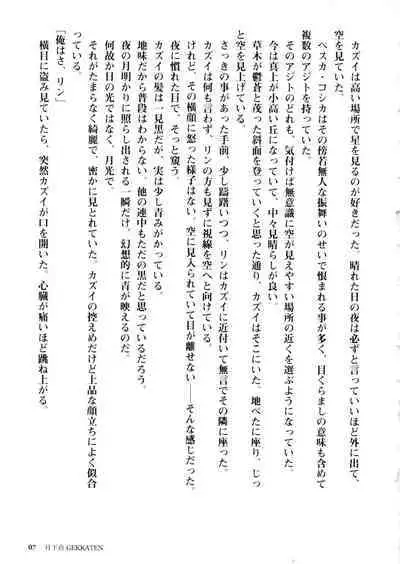 カズイは高い場所で星を見るのが好きだった。晴れた日の夜は必ずと言っていいほど外に出て、
空を見ていた。
ペスカ・コシカはその傍若無人な振舞いのせいで恨まれる事が多く、目くらましの意味も含めて
複数のアジトを持っていた。
そのアジトのどれも、気付けば無意識に空が見えやすい場所の近くを選ぶようになっていた。
今は真上が小高い丘になっていて、中々見晴らしが良い。
草木が鬱蒼と茂った斜面を登っていくと思った通り、カズイはそこにいた。地べたに座り、じっ
と空を見上げている。
さっきの事があった手前、少し躊躇いつつ、リンはカズイに近付いて無言でその隣に座った。
カズイは何も言わず、リンの方も見ずに視線を空へと向けている。
けれど、その横顔に怒った様子はない。空に見入られていて目が離せない――そんな感じだった。
夜に慣れた目で、そっと窺う。
カズイの髪は一見黒だが、実は少し青みがかっている。
地味だから普段はわからない。他の連中もただの黒だと思っているだろう。
夜の月明かりに照らし出される一瞬だけ、幻想的に青が映えるのだ。
何故か日光ではなく、月光で。
それがたまらなく綺麗で、密かに見とれていた。カズイの控えめだけど上品な顔立ちによく似合
っている。
「俺はさ、リン」
横目に盗み見ていたら、突然カズイが口を開いた。心臓が痛いほど跳ね上がる。
07 月下点 GEKKATEN